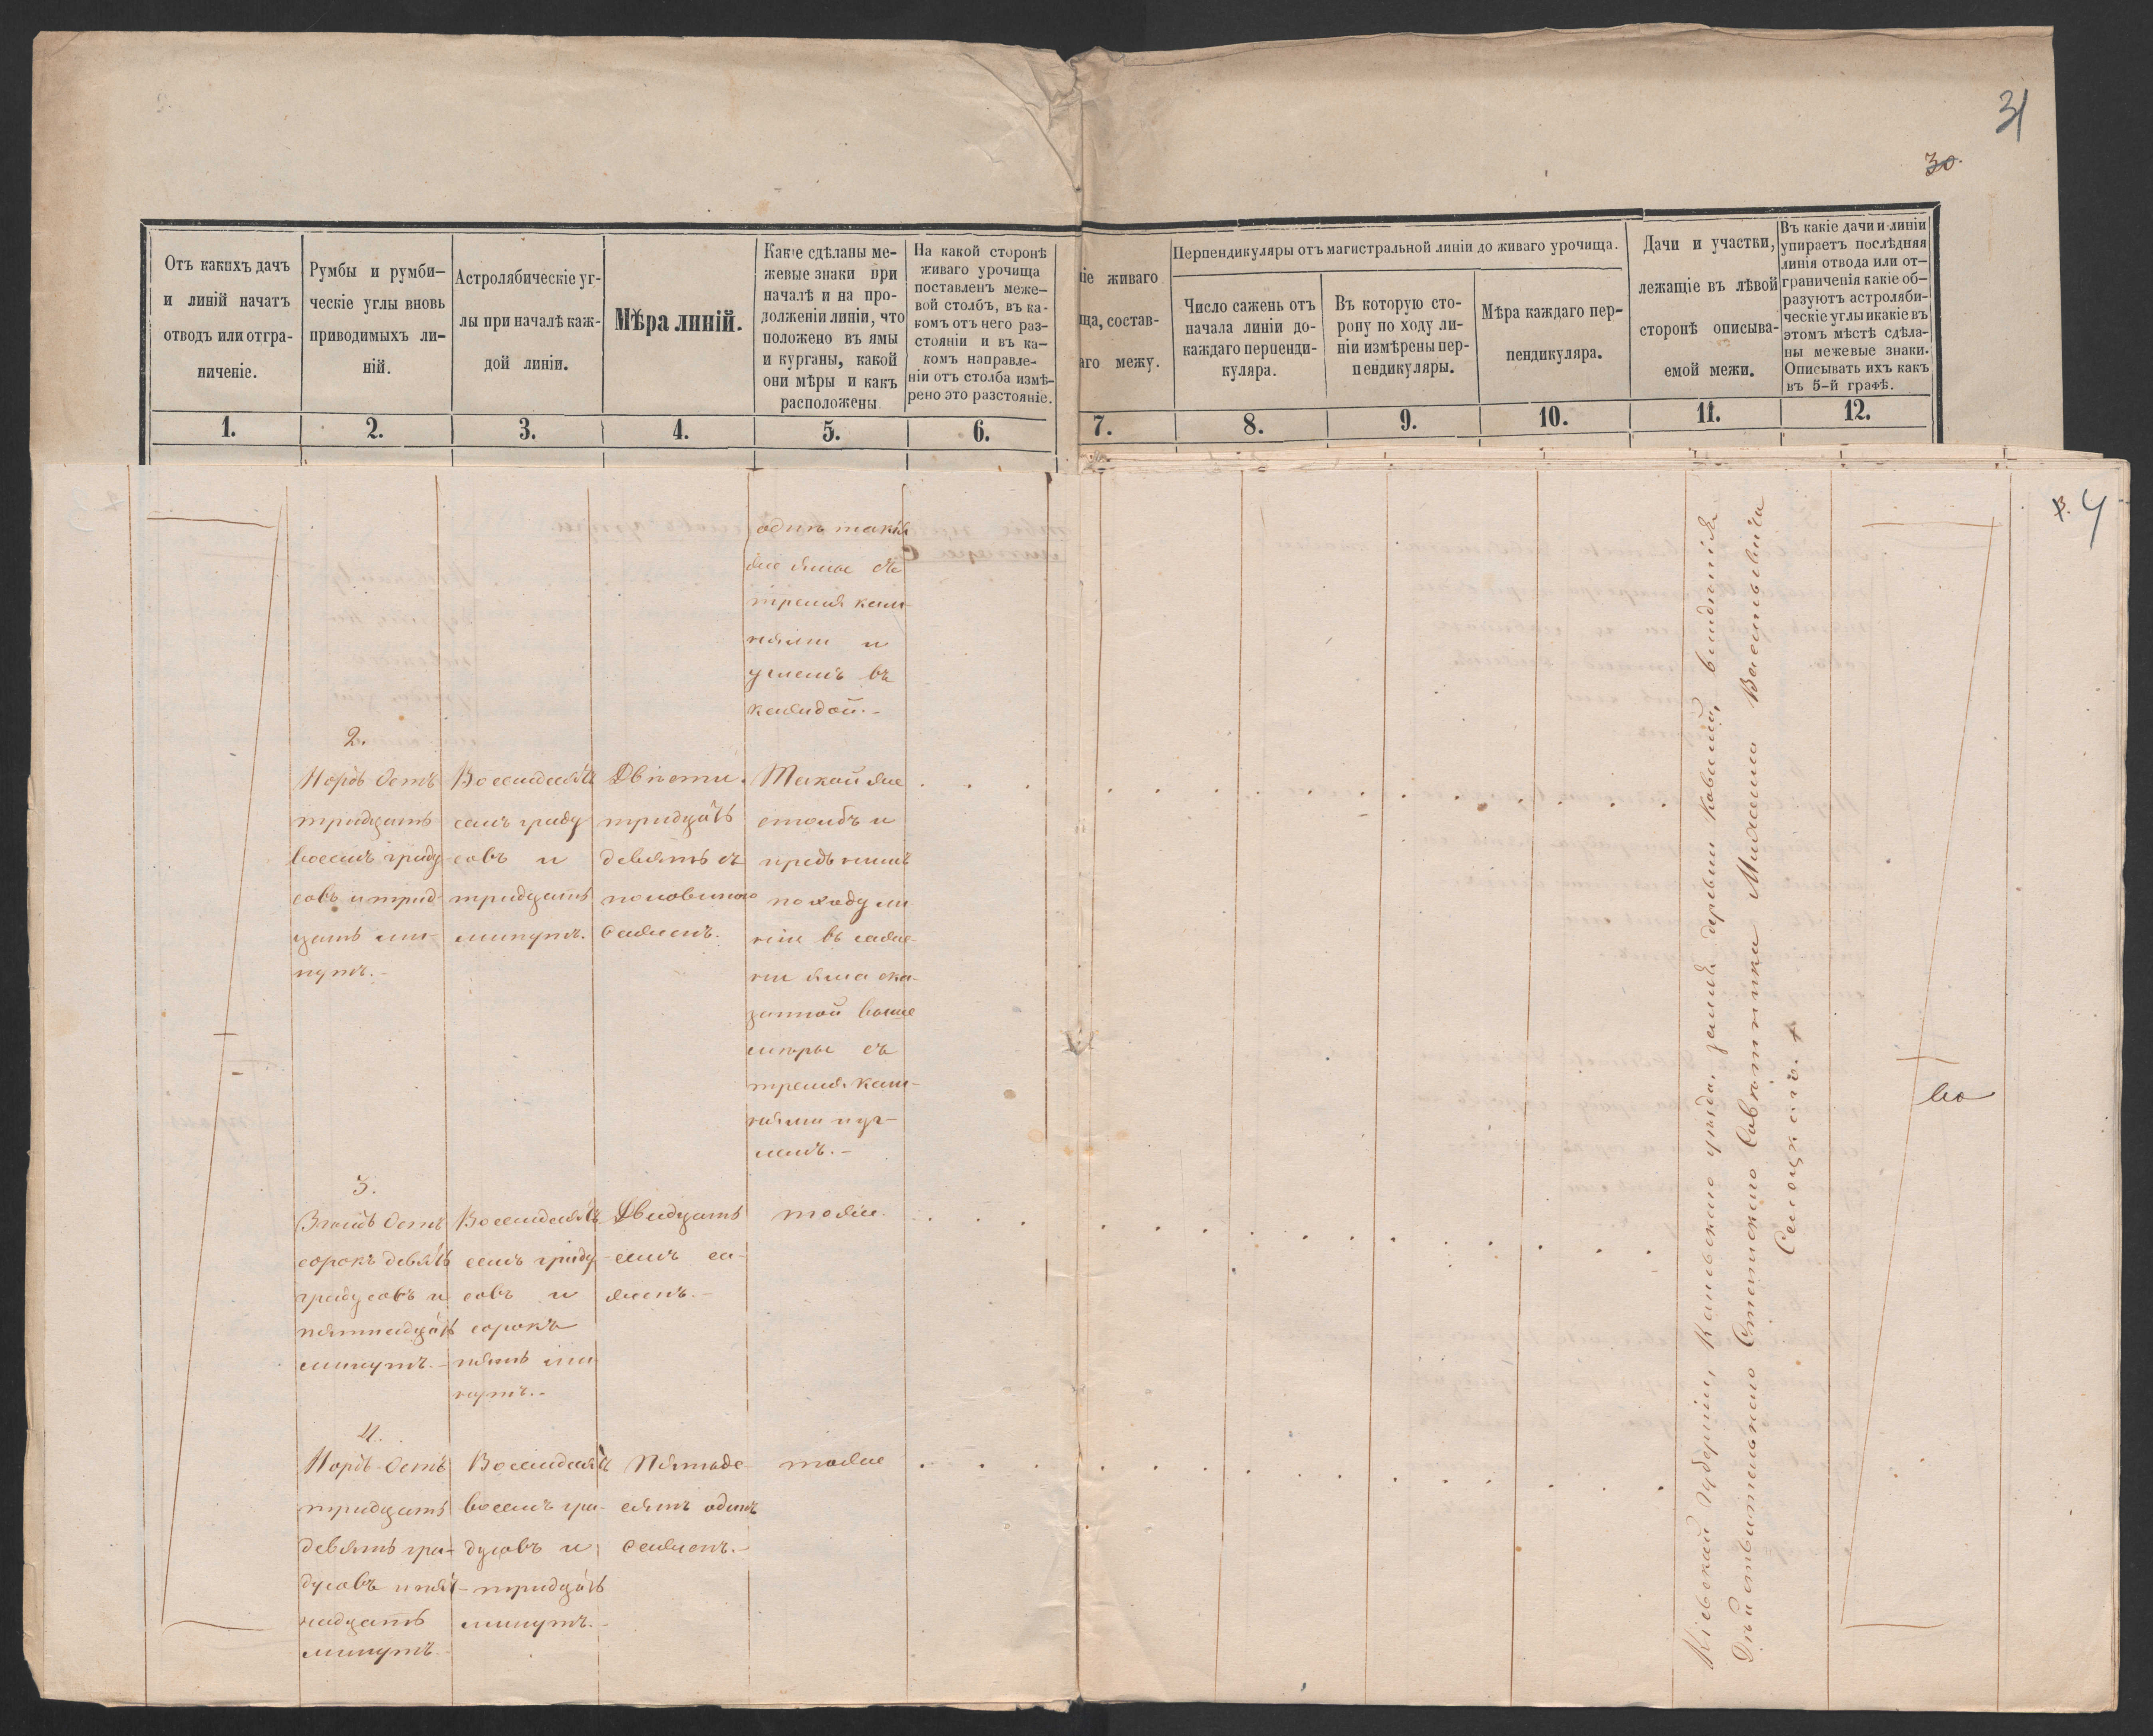 31
30.
Отъ какихъ дачъ
и линій начатъ
отводъ или отгра-
ниченіе.
Румбы и румби-
ческіе углы вновь
приводимыхъ ли-
ній.
Астролябическіе уг-
лы при началѣ каж-
дой линіи.
Мѣра линій.
Какіе сдѣланы ме-
жевые знаки при
началѣ и на про-
долженіи линіи, что
положено въ ямы
и курганы, какой
они мѣры и какъ
расположены.
На какой сторонѣ
живаго урочища
поставленъ меже-
вой столбъ, въ ка-
комъ отъ него раз-
стояніи и въ ка-
комъ направле-
ніи отъ столба измѣ-
рено это разстояніе.
ніе живаго
ща, состав-
аго межу.
Перпендикуляры отъ магистральной линіи до живаго урочища.
Число сажень отъ
начала линіи до-
каждаго перпенди-
куляра.
Въ которую сто-
рону по ходу ли-
ніи измѣрены пер-
пендикуляры.
Мѣра каждаго пер-
пендикуляра.
Дачи и участки,
лежащіе въ лѣвой
сторонѣ описыва-
емой межи.
Въ какіе дачи и линіи
упираетъ послѣдняя
линія отвода или от-
граниченія какіе об-
разуютъ астроляби-
ческіе углы и какіе въ
этомъ мѣстѣ сдѣла-
ны межевые знаки.
Описывать ихъ какъ
въ 5-й графѣ.
1. 2. 3. 4. 5. 6. 7. 8. 9. 10. 11. 12.
4
одинъ такія
же ямы съ
тремя кам-
нями и
углемъ въ
каждой.-
2.
Нордъ Остъ
тридцать
восемь граду
совъ и трид-
цать ми-
нутъ.-
Восемдесятъ
семь граду
совъ и
тридцать
минутъ.
Двѣсти
тридцать
девять съ
половиною
сажень.
Такой же
столбъ и
предъ нимъ
по ходу ли
ніи въ саже-
ни яма ска-
занной выше
мѣры съ
тремя кам-
нями и уг-
лемъ.-
3.
Зюйдъ Остъ
сорокъ девять
градусовъ и
пятнадцать
минутъ.-
Восемдесятъ
семь граду
совъ и
сорокъ
пять ми
нутъ.-
Двадцать
семь са-
жень.-
тоже.
4.
Нордъ-Остъ
тридцать
девять гра-
дусовъ и пят-
надцать
минутъ.
Восемдесятъ
восемь гра-
дусовъ и
тридцать
минутъ.-
Пятьде-
сятъ одинъ
сажень.-
тоже
Кіевской губерніи, Каневскаго уѣзда, земля деревни Ковалей, владѣнія
Дѣйствительнаго Статскаго Совѣтника Михаила Васильевича
во